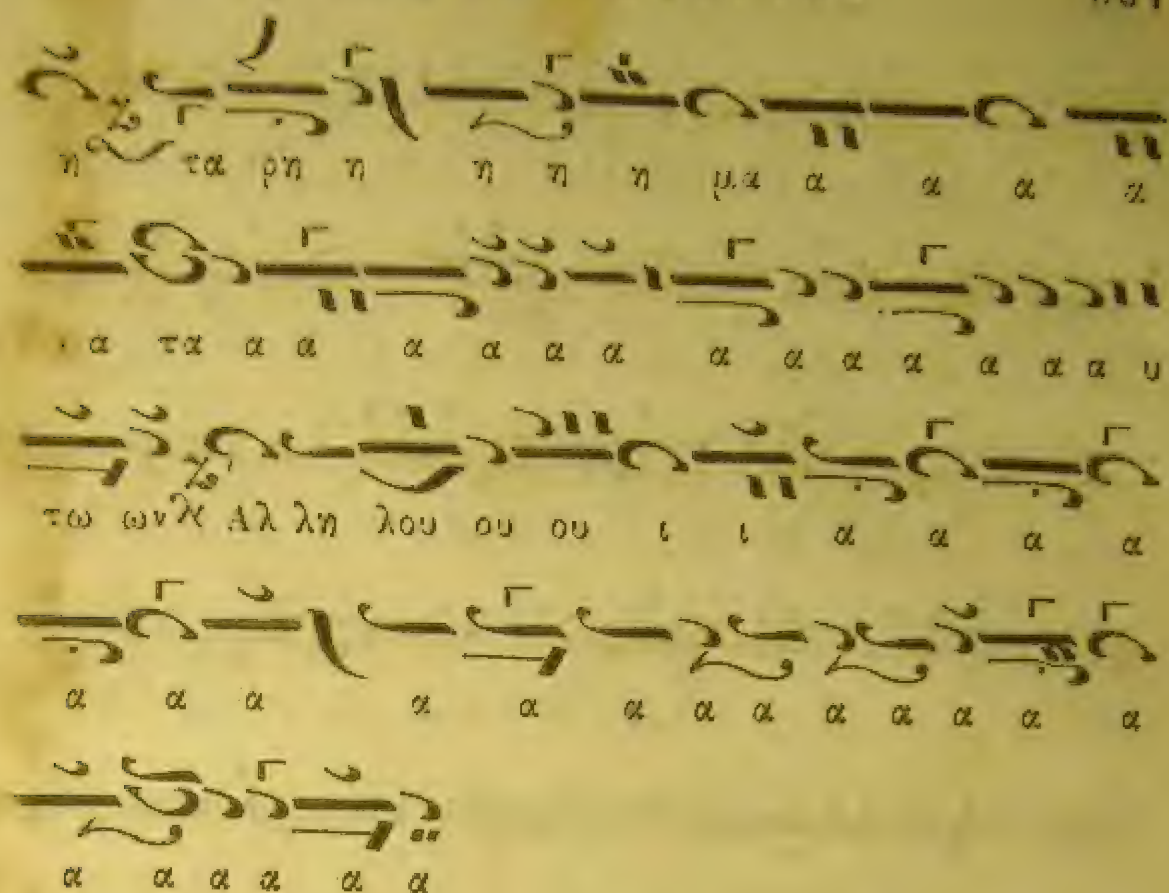 η τα ρη η η η η μα α α α α
α τα α α α α α α α α α α α α α υ
τω ων Αλ λη λου ου ου ι ι α α α α
α α α α α α α α α α α α α
α α α α α α